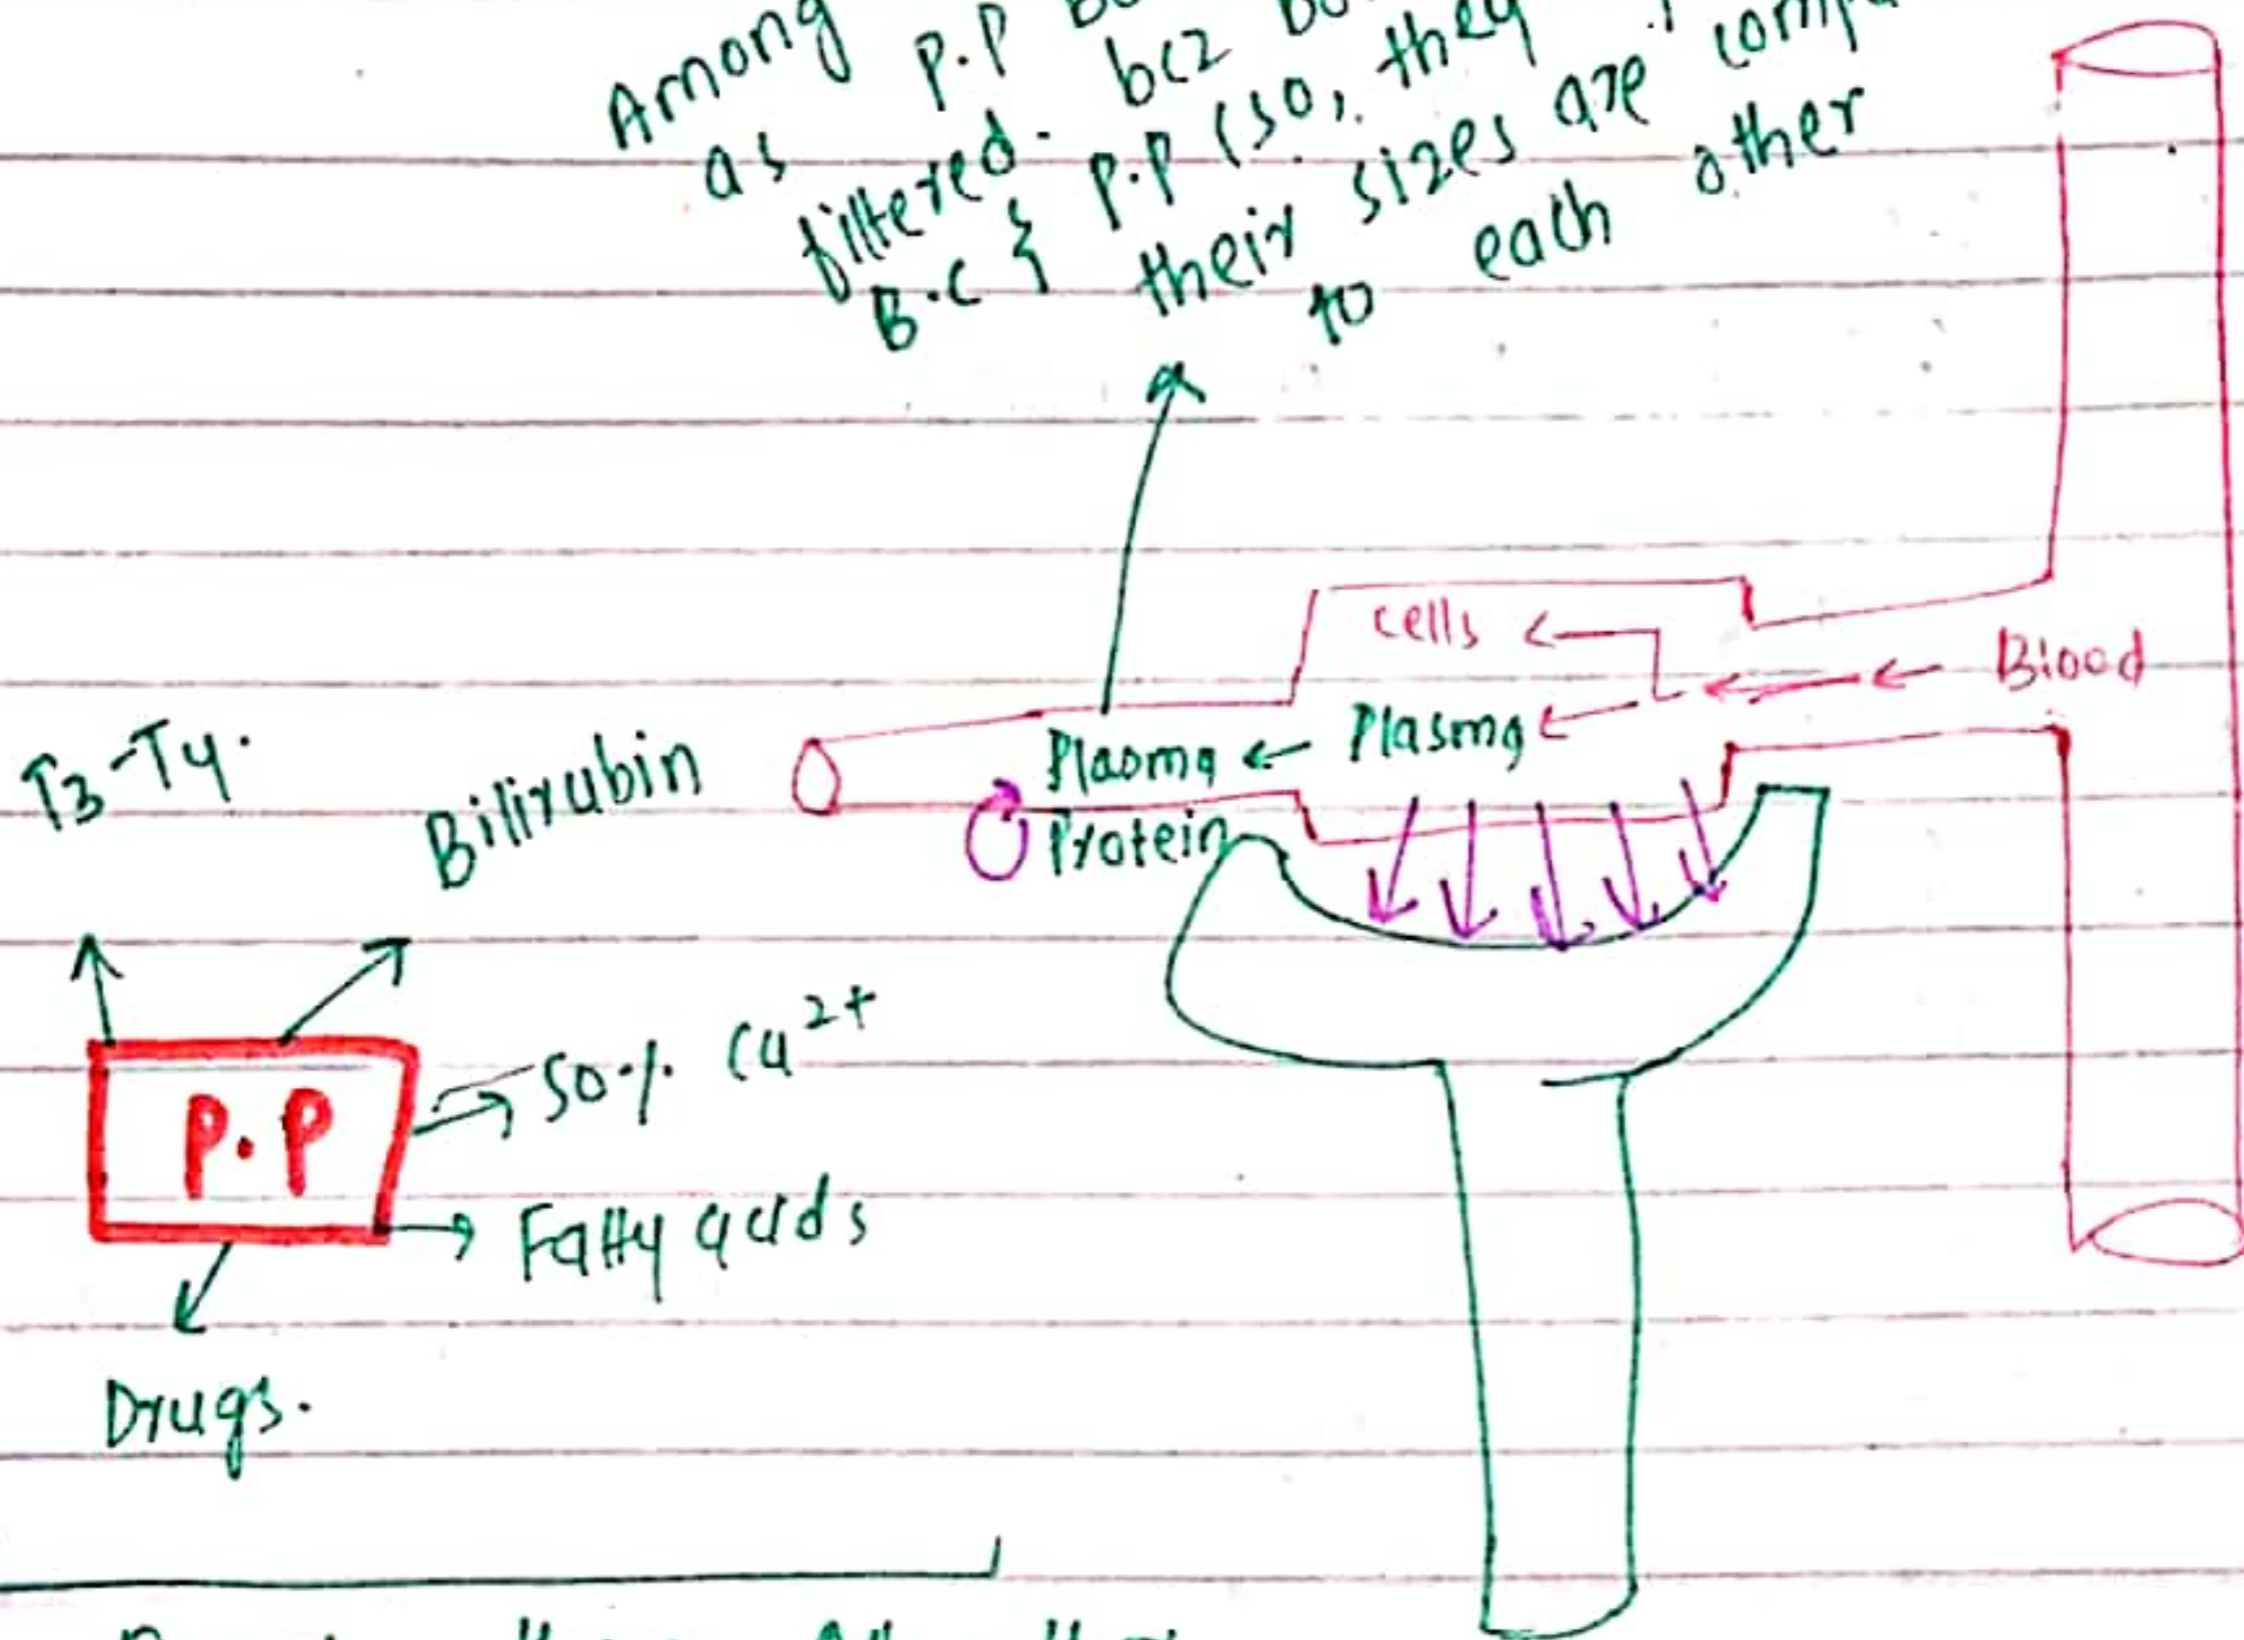 Among
as P.P
filltered. bcz
B.C } P.P (so, they
their sizes are
to each other
cells
Blood
Plasma
Plasma
Protein
T3-T4.
Bilirubin
50% Ca2+
P.P
Fatty acids
Drugs.